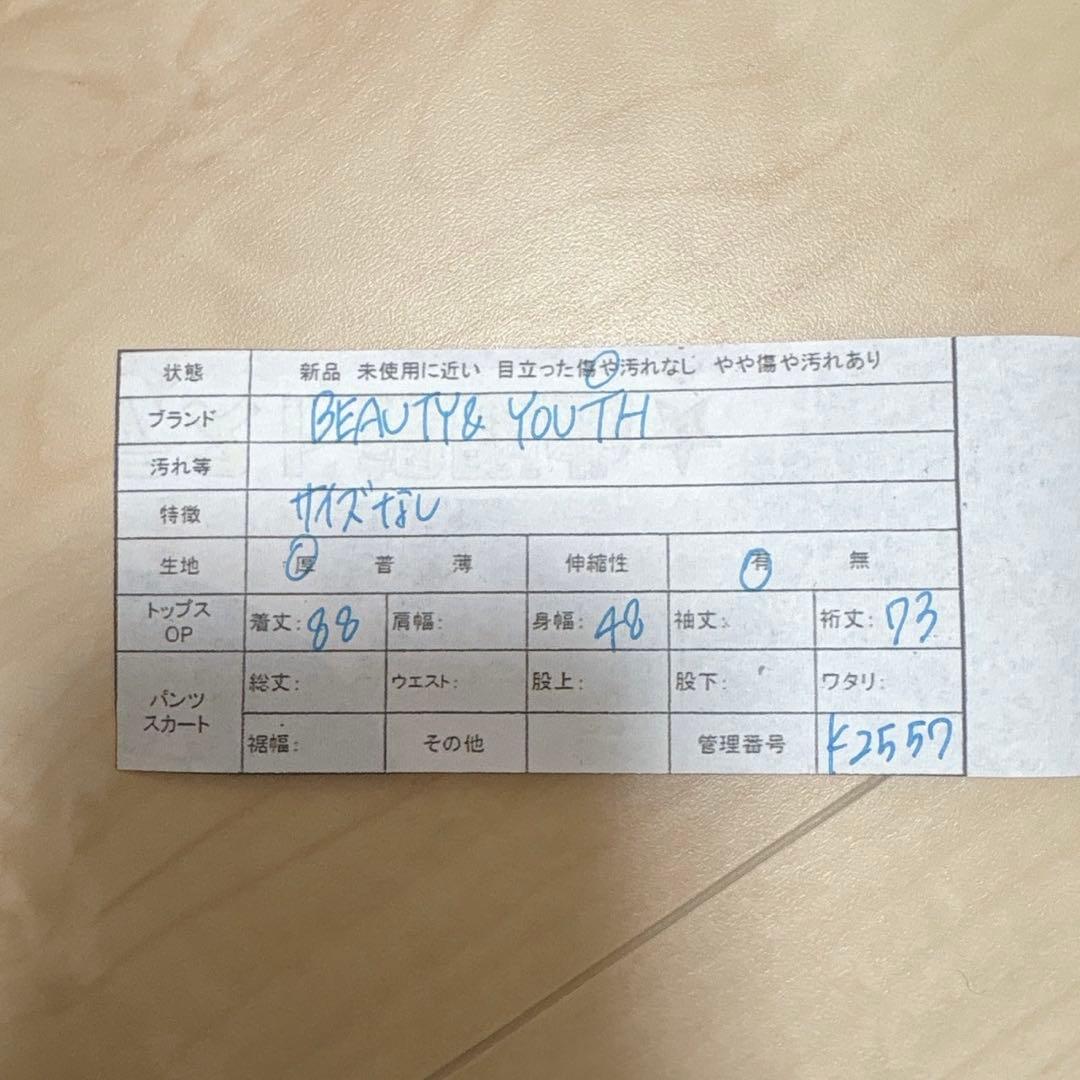 状態 新品 未使用に近い 目立った傷や汚れなし やや傷や汚れあり
ブランド BEAUTY& YOUTH
汚れ等
特徴 サイズなし
生地 厚 普 薄 伸縮性 有 無
トップス OP 着丈: 88 肩幅: 身幅: 48 袖丈: 裄丈: 73
パンツ スカート 総丈: ウエスト: 股上: 股下: ワタリ:
裾幅: その他 管理番号 K2557